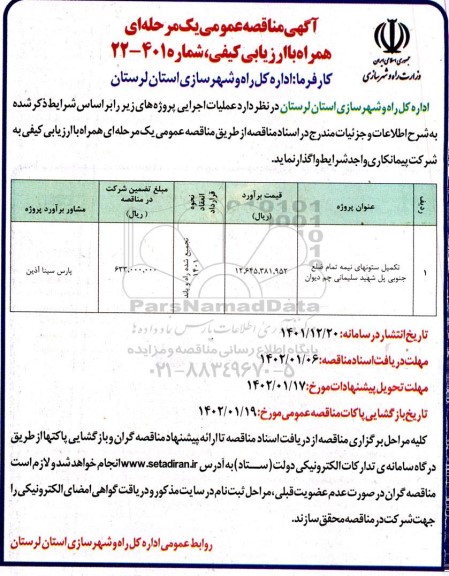 آگهی مناقصه عمومی یک مرحله‌ای
همراه با ارزیابی کیفی، شماره ۴۰۱-۲۲
کارفرما: اداره کل راه و شهرسازی استان لرستان
جمهوری اسلامی ایران
وزارت راه و شهرسازی
اداره کل راه و شهرسازی استان لرستان در نظر دارد عملیات اجرایی پروژه‌های زیر را بر اساس شرایط ذکر شده
به شرح اطلاعات و جزئیات مندرج در اسناد مناقصه از طریق مناقصه عمومی یک مرحله‌ای همراه با ارزیابی کیفی به
شرکت پیمانکاری واجد شرایط واگذار نماید.
ردیف
عنوان پروژه
قیمت برآورد (ریال)
نحوه انعقاد قرارداد
مبلغ تضمین شرکت در مناقصه (ریال)
مشاور برآورد پروژه
۱
تکمیل ستونهای نیمه تمام ضلع
جنوبی پل شهید سلیمانی چم دیوان
۱۲,۶۴۵,۳۸۱,۹۵۲
تجمیع شده راه و باند ۱۴۰۱
۶۳۳,۰۰۰,۰۰۰
پارس سینا آذین
ParsNamadData
پایگاه اطلاع رسانی مناقصه و مزایده
۰۲۱-۸۸۳۴۹۶۷۰-۵
تاریخ انتشار در سامانه: ۱۴۰۱/۱۲/۲۰
مهلت دریافت اسناد مناقصه: ۱۴۰۲/۰۱/۰۶
مهلت تحویل پیشنهادات مورخ: ۱۴۰۲/۰۱/۱۷
تاریخ بازگشایی پاکات مناقصه عمومی مورخ: ۱۴۰۲/۰۱/۱۹
کلیه مراحل برگزاری مناقصه از دریافت اسناد مناقصه تا ارائه پیشنهاد مناقصه گران و بازگشایی پاکتها از طریق
درگاه سامانه ی تدارکات الکترونیکی دولت (ستاد) به آدرس www.setadiran.ir انجام خواهد شد و لازم است
مناقصه گران در صورت عدم عضویت قبلی، مراحل ثبت نام در سایت مذکور و دریافت گواهی امضای الکترونیکی را
جهت شرکت در مناقصه محقق سازند.
روابط عمومی اداره کل راه و شهرسازی استان لرستان